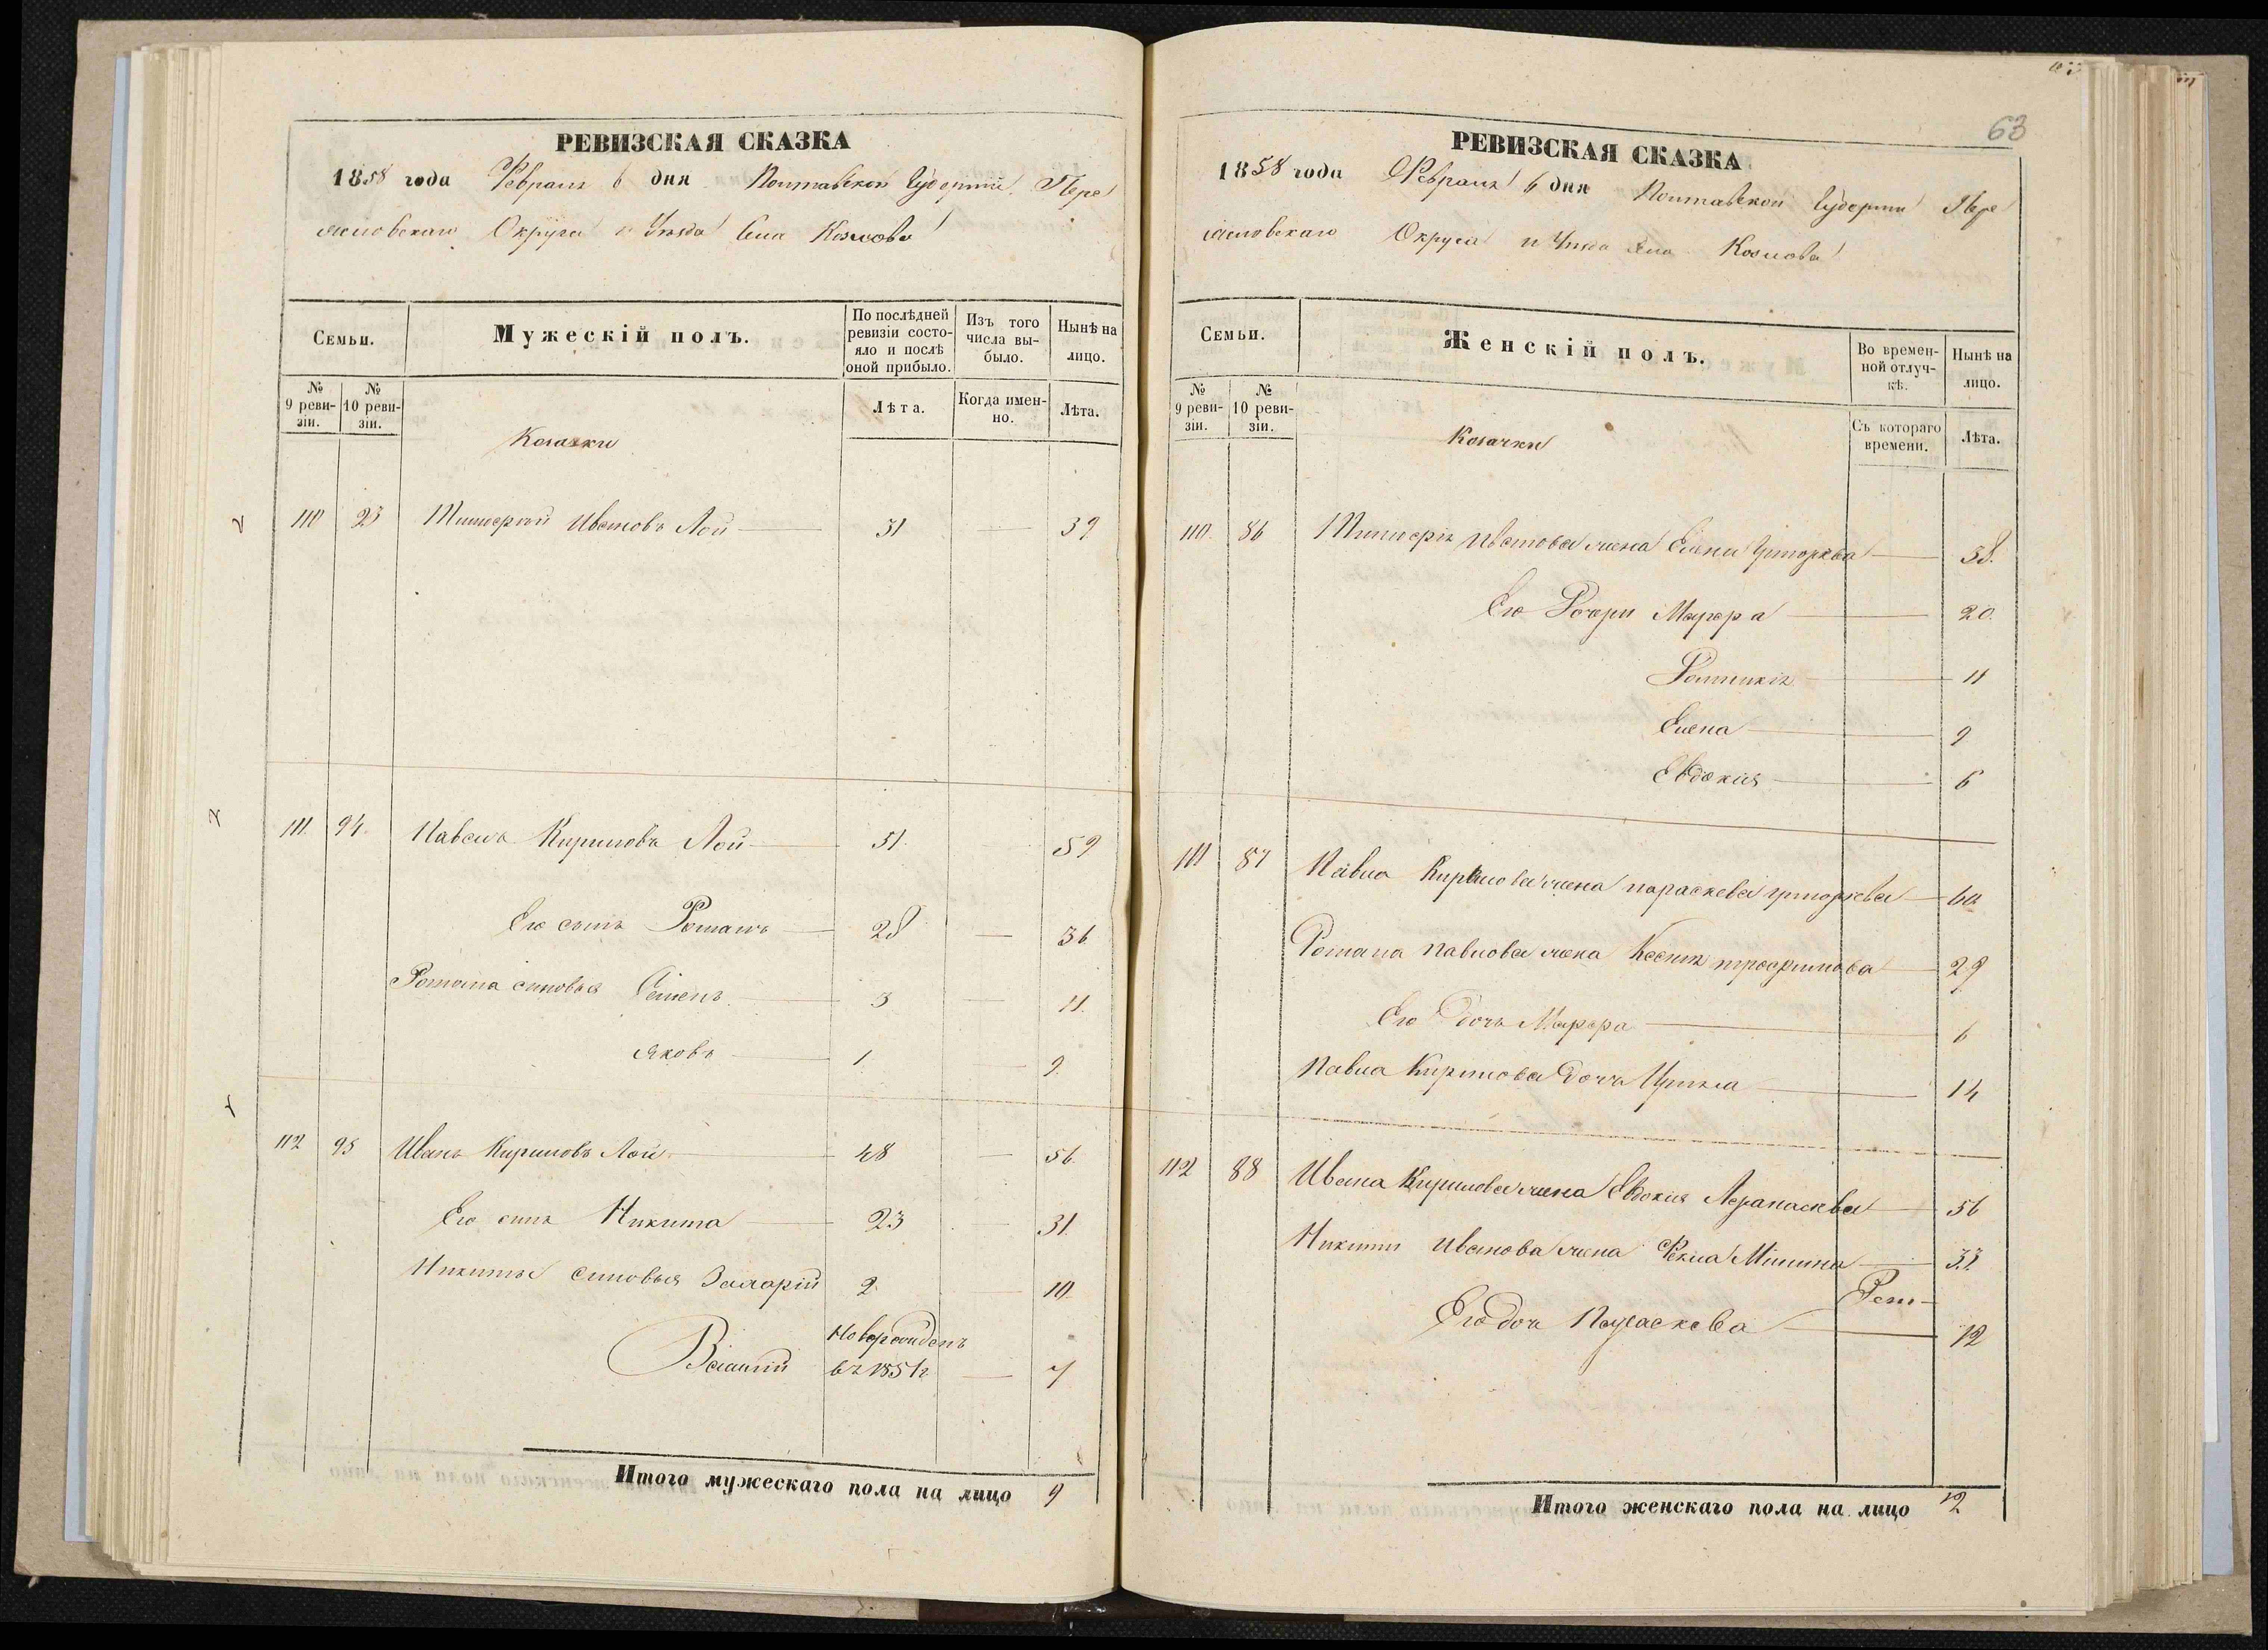 РЕВИЗСКАЯ СКАЗКА
1858 года Февраля 6 дня Полтавской Губерніи Пере
яславскаго Округа и Уезда Села Козлова
Семьи.
Мужескій полъ.
По послѣдней ревизіи состо-
яло и послѣ оной прибыло.
Изъ того числа вы-
было.
Нынѣ на лицо.
№ 9 реви-
зіи.
№ 10 реви-
зіи.
Козаки
Лѣта.
Когда имен-
но.
Лѣта.
110 93 Тимофѣй Ивановъ Лой 31 39
111. 94. Павелъ Кириловъ Лой 51. 59
Его сынъ Романъ 28 36
Романа сыновья Семенъ 3 11.
Яковъ 1. 9.
112 95 Иванъ Кириловъ Лой 48 56.
Его сынъ Никита 23 31.
Никиты сыновья Захарій 2. 10.
Новорожденъ
Василій въ 1851 г. 7
Итого мужескаго пола на лицо 9
63
РЕВИЗСКАЯ СКАЗКА
1858 года Февраля 6 дня Полтавской Губерніи Пере
яславскаго Округа и Уезда Села Козлова
Семьи.
Женскій полъ.
Во времен-
ной отлуч-
кѣ.
Нынѣ на лицо.
№ 9 реви-
зіи.
№ 10 реви-
зіи.
Козачки
Съ котораго времени.
Лѣта.
110. 86 Тимофія Иванова жена Елена Григорьева 38.
Его дочери Марфа 20.
11
Елена 9
Евдокія 6
111 87 Павла Кирилова жена Параскева Григорьева 60
Романа Павлова жена Ксенія Трофимова 29
Его дочь Марфа 6
Павла Кирилова дочь 14
112 88 Ивана Кирилова жена Евдокія Афанасьева 56
Никиты Иванова жена Фекла Минина 33
Его дочь Параскева 12
Итого женскаго пола на лицо 12